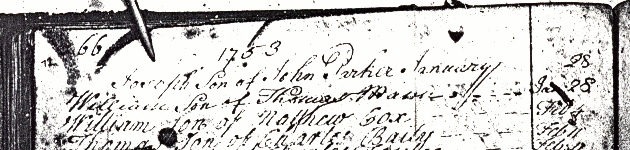 66
1753
Joseph Son of John Parker January 28
William Son of Thomas Ja 28
William Son of Matthew Cox Feb
Thomas Son of Charles Feb 11